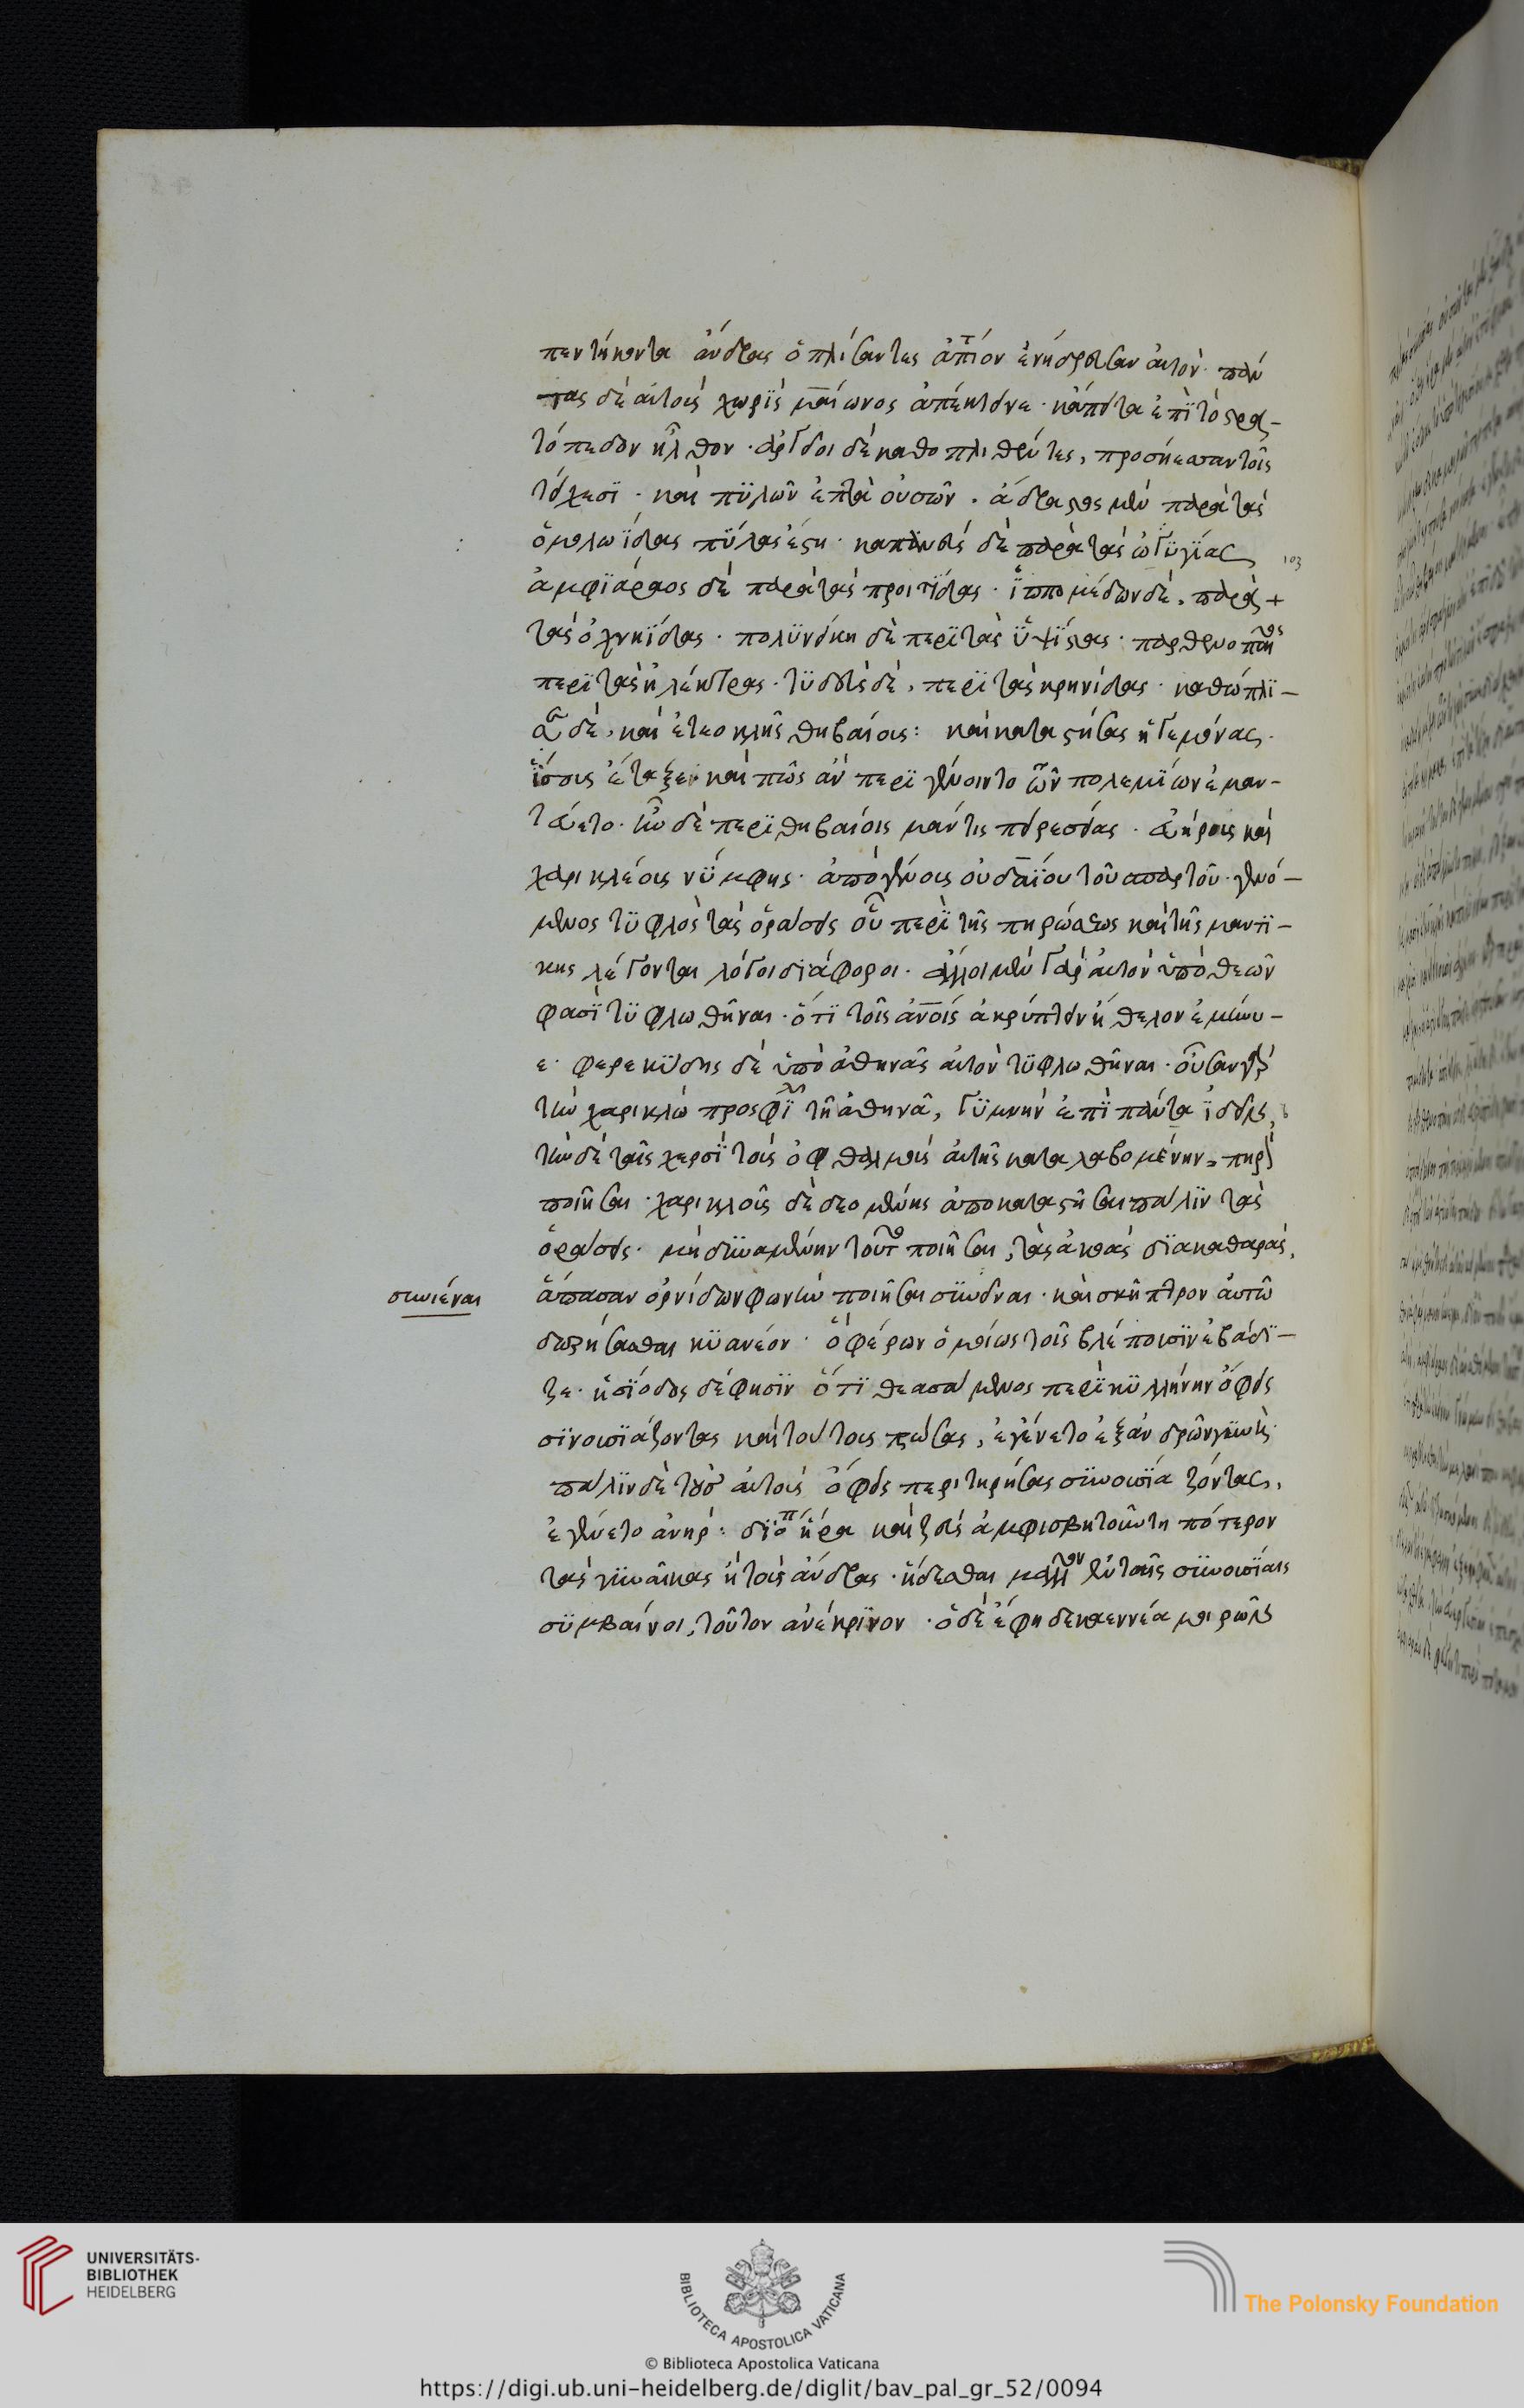 πεντήκοντα ἄνδρας ὁπλίσαντες ἀπιόν ἐνήδρευσαν αὐτὸν· πάν
τας δὲ αὐτοὺς χωρὶς μαίωνος ἀπέκτεινε· κἄπειτα ἐπὶ τὸ στρα-
τόπεδον ἦλθον· ἀργεῖοι δὲ καθοπλισθέντες, προσήεσαν τοῖς
τείχεσϊ· καὶ πϋλῶν ἑπτὰ οὐσῶν· ἄδραστος μὲν παρὰ τὰς
ὁμολωΐδας πΰλας ἔστη· καπανεὺς δὲ παρὰ τὰς ὠγϋγΐας
103
ἀμφϊάραος δὲ παρὰ τὰς προιτΐδας· ϊππομέδων δὲ, παρὰ +
τὰς ὀγκαΐδας· πολϋνείκη δὲ περϊ τὰς ὑψΐστας· παρθενοπαῖος
περϊ τὰς ἠλέκτρας· τϋδεὺς δὲ, περϊ τὰς κρηνίδας· καθώπλι-
σε δὲ, καὶ ἐτεοκλῆς θηβαίους: καὶ καταστήσας ἡγεμόνας·
ϊσους ἔταξεν καὶ πῶς ἂν περϊγένοιντο τῶν πολεμΐων ἐμαν-
τεύετο· ἦν δὲ περϊ θηβαίοις μάντις τειρεσίας· εὐήρους καὶ
χαρικλέους νΰμφης· ἀπὸ γένους οὐδαΐου τοῦ σπαρτοῦ· γενό-
μενος τϋφλὸς τὰς ὁράσεις οὗ περϊ τῆς πηρώσεως καὶ τῆς μαντϊ-
κης λέγονται λόγοι διάφοροι· ἄλλοι μὲν γὰρ αὐτὸν ὑπὸ θεῶν
φασϊ τϋφλωθῆναι· ὅτϊ τοῖς ἀνοις ἃ κρύπτειν ἤθελον ἐμήνυ-
ε· φερεκΰδης δὲ ὑπὸ ἀθηνᾶς αὐτὸν τϋφλωθῆναι· οὖσαν γὰρ
τὴν χαρικλὼ προσφϊλῆ τῇ ἀθηνᾷ, γϋμνὴν ἐπϊ πάντα ϊδεῖν,
τὴν δὲ ταῖς χερσϊ τοὺς ὀφθαλμοὺς αὐτῆς καταλαβομένην, πηρὸν
ποιῆσαι· χαρικλοῦς δὲ δεομένης ἀποκαταστῆσαι πάλϊν τὰς
ὁράσεις· μὴ δϋναμένην τοῦτο ποιῆσαι, τὰς ἀκοὰς διακαθαρὰς,
συνιέναι
ἅπασαν ὀρνίδων φωνὴν ποιῆσαι σϋνεῖναι· καὶ σκῆπτρον αὐτῷ
δωρήσασθαι κϋανέον· ὃ φέρων ὁμοίως τοῖς βλέπουσϊν ἐβάδϊ-
ζε· ἡσΐοδος δέ φησϊν ὅτϊ θεασάμενος περϊ κϋλλήνην ὄφεις
σϋνουσϊάζοντας καὶ τούτους τρώσας, ἐγένετο ἐξ ἀνδρῶν γϋνὴ·
πάλϊν δὲ τοὺς αὐτοὺς ὄφεις περιτηρήσας σϋνουσϊάζοντας,
ἐγένετο ἀνήρ: δϊὸπ ἥρα καὶ ζεὺς ἀμφισβητοῦντη πότερον
τὰς γϋναῖκας ἢ τοὺς ἄνδρας· ἥδεσθαι μᾶλλον ἐν ταῖς σϋνουσΐαις
σϋμβαίνοι, τοῦτον ἀνέκρϊνον· ὁ δὲ ἔφη δεκαεννέα μοιρῶν
UNIVERSITÄTS-
BIBLIOTHEK
HEIDELBERG
BIBLIOTECA APOSTOLICA VATICANA
The Polonsky Foundation
© Biblioteca Apostolica Vaticana
https://digi.ub.uni-heidelberg.de/diglit/bav_pal_gr_52/0094